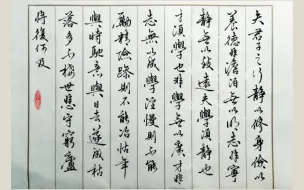 夫君子之行靜以修身儉以
養德非澹泊無以明志非寧
靜無以致遠夫學須靜也
才須學也非學無以廣才非
志無以成學淫慢則不能
勵精險躁則不能冶性年
與時馳意與日去遂成枯
落多不接世悲守窮廬
將復何及